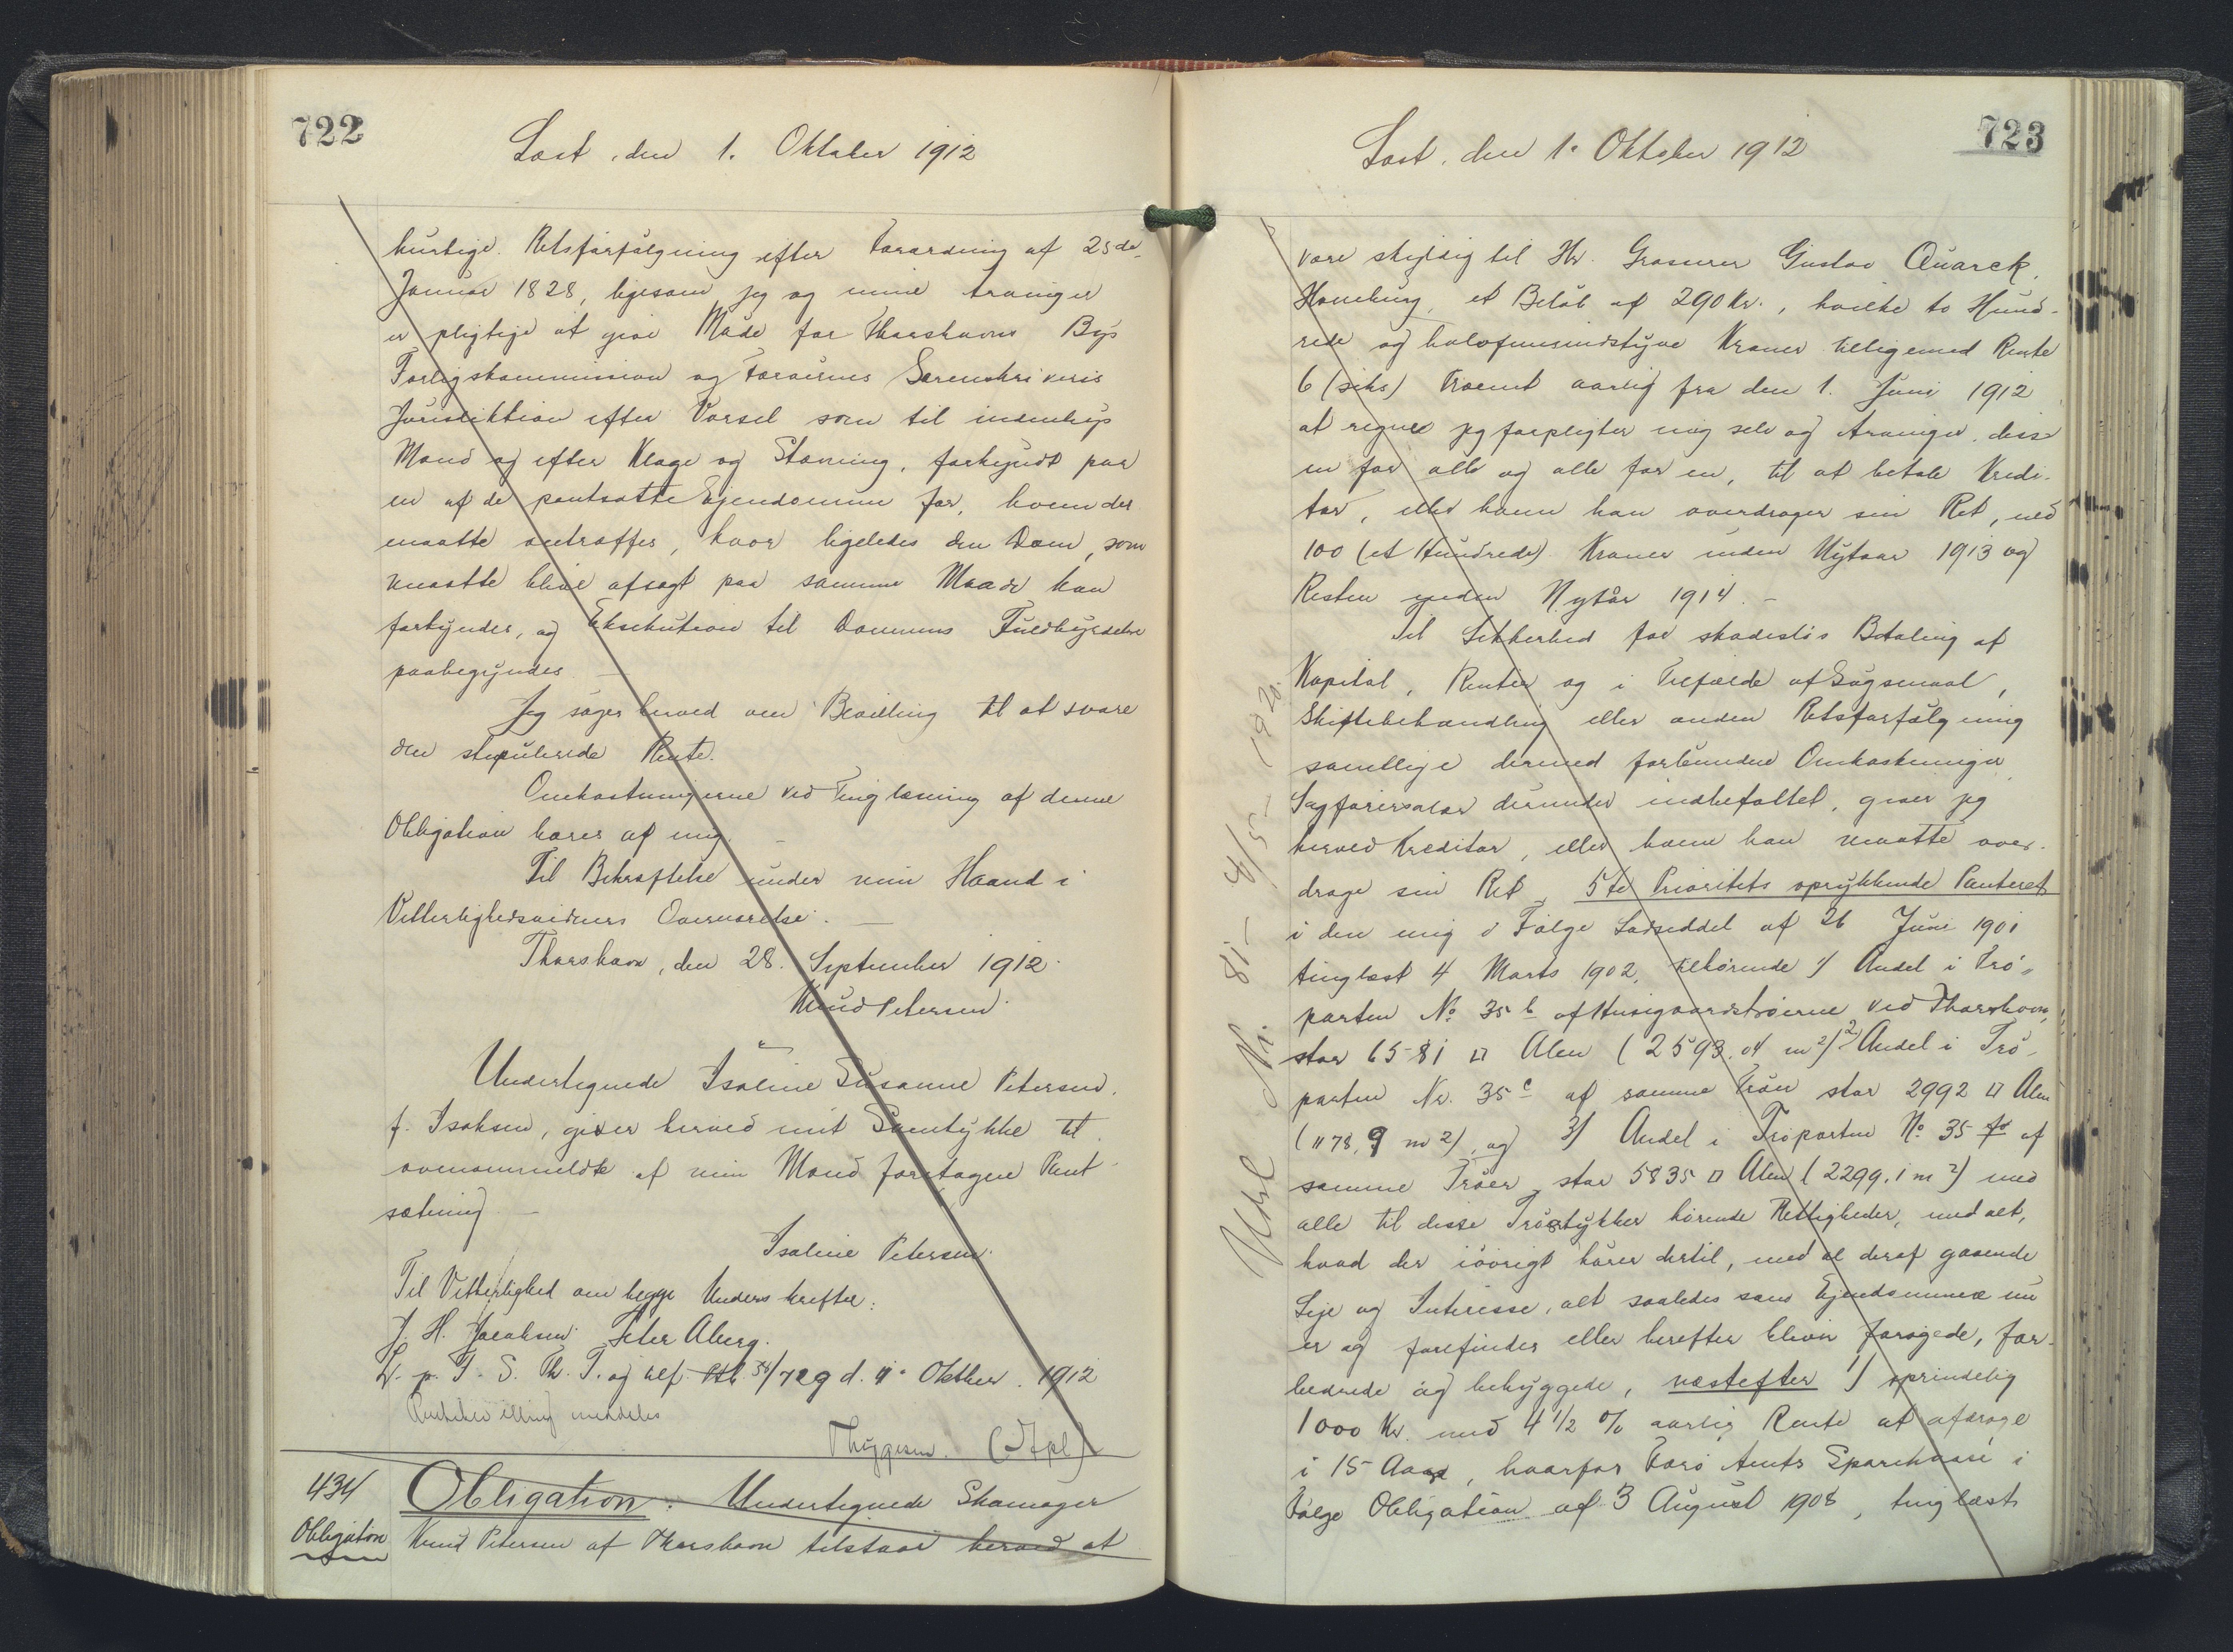 722
Læst, den 1. Oktober 1912
hurtige Retsforfølgning efter Forordning af 25de
Januar 1828, ligesom jeg og mine Arvinger
er pligtige at give Møde for Thorshavns Bys
Forligskommission og Færøernes Sorenskriveris
Jurisdiktion efter Varsel som til indenbys
Mand og efter Klage og Stævning, forkyndt paa
en af de pantsatte Ejendomme for, hvem der
maatte antræffes, hvor ligeledes den Dom, som
maatte blive afsagt paa samme Maade kan
forkyndes, og Eksekution til Dommens Fuldbyrdelse
paabegyndes. —
Jeg søger herved om Bevilling til at svare
den stipulerede Rente.
Omkostningerne ved Tinglæsning af denne
Obligation bæres af mig. —
Til Bekræftelse under min Haand i
Vitterlighedsvidners Overværelse. —
Thorshavn, den 28. September 1912.
Knud Petersen.
Undertegnede Isaline Susanne Petersen,
f. Isaksen, giver herved mit Samtykke til
ovenommeldte af min Mand foretagne Pant-
sætning —
Isaline Petersen.
Til Vitterlighed om begge Underskrifter:
J. H. Jacobsen. Peter Aberg.
L. p. F. S. Th. T. og ref. Ptb. 729 d. 1. Oktber. 1912
Rentebevilling meddeles
Thygesen. (Stpl)
434
Obligation: Undertegnede Skomager
Obligation
Knud Petersen af Thorshavn tilstaar herved at
723
Læst, den 1. Oktober 1912
være skyldig til Hr. Grosserer Gustav Quarck,
Hamburg, et Beløb af 290 Kr., hvilke to Hund-
rede og halvfemsindstyve Kroner tilligemed Rente
6 (seks) Procent aarlig fra den 1. Juni 1912
at regne jeg forpligter mig selv og Arvinger, disse
en for alle og alle for en, til at betale Kredi-
tor, eller hvem han overdrager sin Ret, med
100 (et Hundrede) Kroner inden Nytaar 1913 og
Resten inden Nytår 1914. —
Til Sikkerhed for skadesløs Betaling af
Kapital, Renter og i Tilfælde af Søgsmaal,
Skiftebehandling eller anden Retsforfølgning
samtlige dermed forbundne Omkostninger,
Sagførersalær derunder indbefattet, giver jeg
herved Kreditor, eller hvem han maatte over-
drage sin Ret, 5te Prioritets oprykkende Panteret
i den mig i Følge Ladseddel af 26 Juni 1901
tinglæst 4 Marts 1902, tilhørende 1) Andel i Trø-
parten No 35 b af Husigaardstrøerne ved Thorshavn,
stor 6581 □ Alen (2593.04 m2) 2) Andel i Trø-
parten Nr. 35 c af samme Trøer stor 2992 □ Alen
(1178,9 m2), og 3) Andel i Trøparten No 35 af
samme Trøer, stor 5835 □ Alen (2299.1 m2) med
alle til disse Trøstykker hørende Rettigheder, med alt,
hvad der iøvrigt hører dertil, med al deraf gaaende
Leje og Interesse, alt saaledes som Ejendommene nu
er og forefindes eller herefter bliver forøgede, for-
bedrede og bebyggede, næstefter 1) oprindelig
1000 Kr. med 4 1/2 % aarlig Rente at afdrage
i 15 Aar, hvorfor Færø Amts Sparekasse i
Følge Obligation af 3 August 1908, tinglæst
Udsl Nr. 81 - 8/5 - 1920.